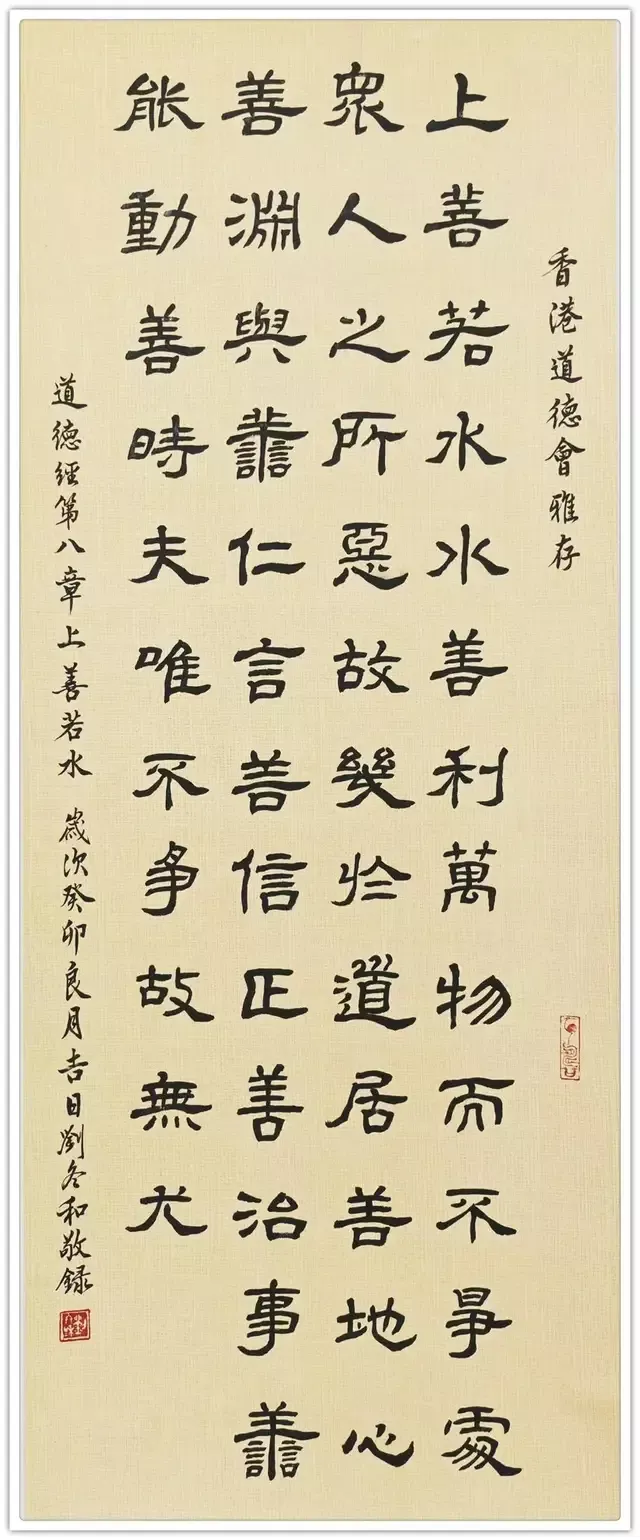 香港道德會雅存
上善若水水善利萬物而不爭處
衆人之所惡故幾於道居善地心
善淵與善仁言善信正善治事善
能動善時夫唯不爭故無尤
道德經第八章上善若水 歲次癸卯良月吉日劉冬和敬録